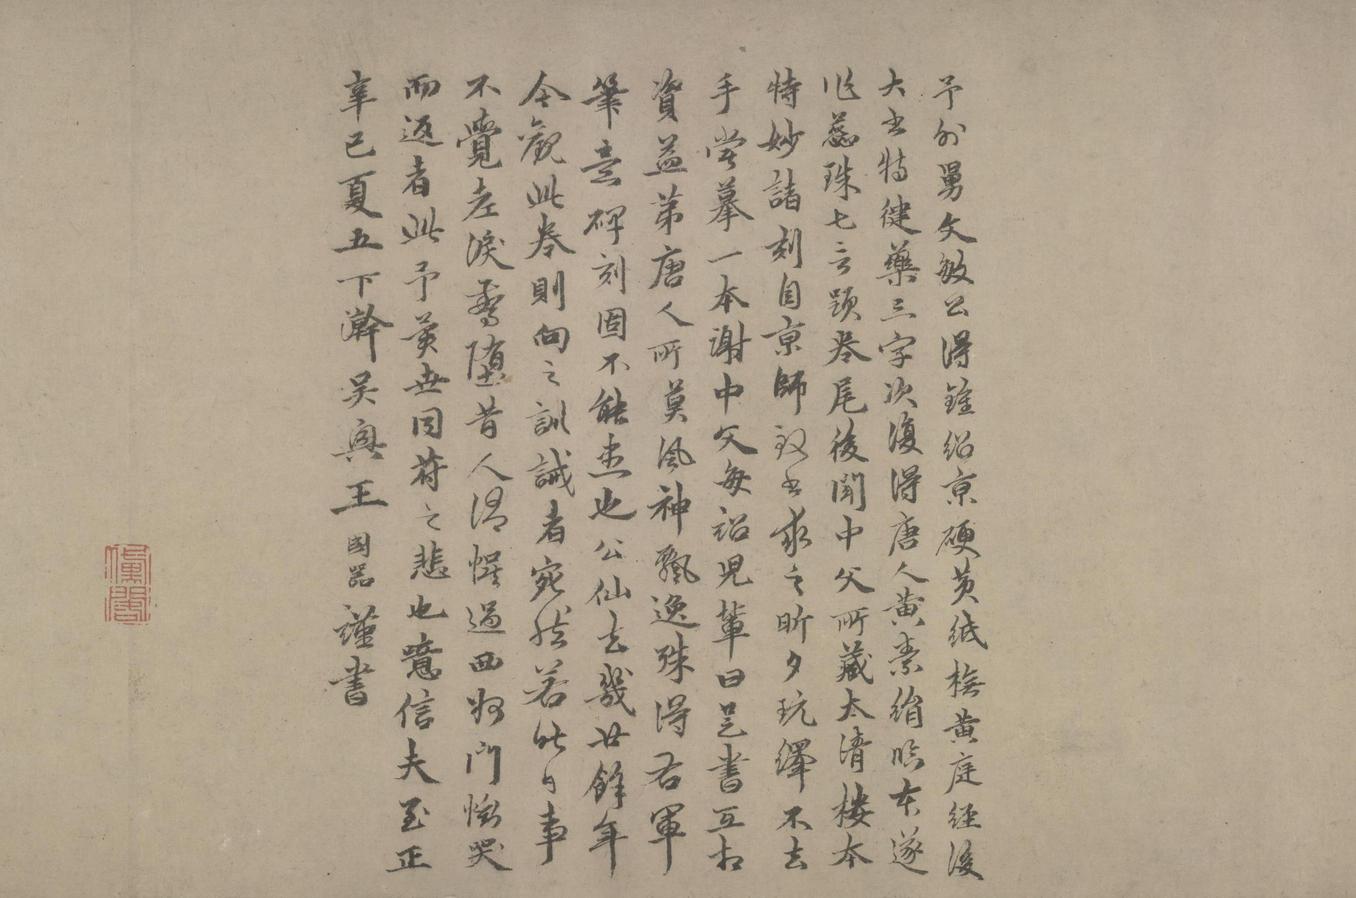 予外舅文敏公得鍾紹京硬黃紙橅黃庭經後
大書特健藥三字次復得唐人黃素絹臨本遂
作蕊珠七言題卷尾後聞中父所藏太清樓本
特妙諸刻自京師致書求之昕夕玩繹不去
手嘗摹一本謝中父每詔兒輩曰是書互相
資益第唐人所莫風神飄逸殊得右軍
筆意碑刻固不能盡也公仙去幾廿餘年
今觀此卷則向之訓誡者宛然若昨日事
不覺老淚為墮昔人酒慢過西州門慟哭
而返者此予黃壚同符之悲也噫信夫至正
辛巳夏五下澣吳興王國器謹書